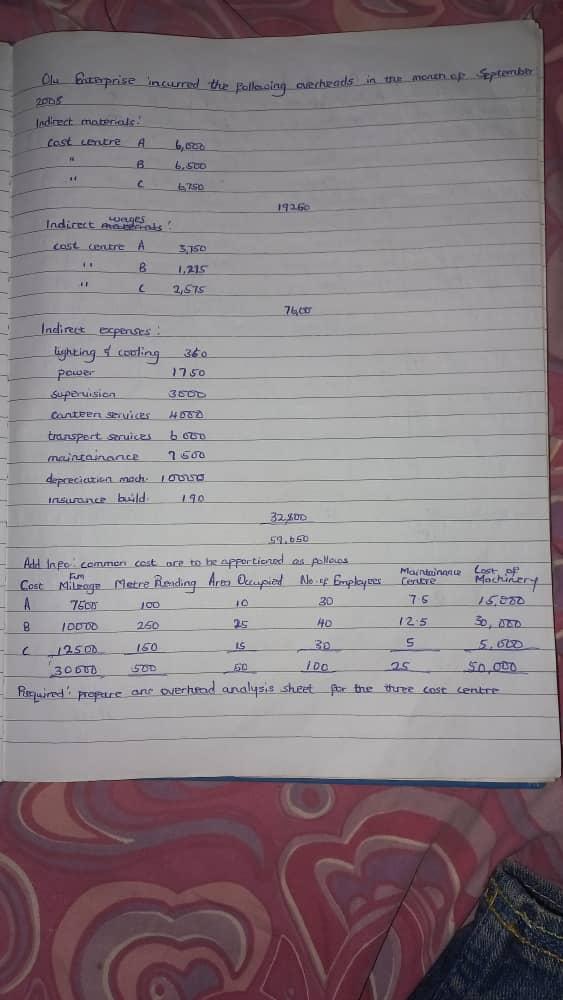 Olu Enterprise incurred the following overheads in the month of September
2008
Indirect materials:
cost centre A 6,000
" B 6,500
" C 6,750
19250
wages
Indirect materials:
cost centre A 3,750
" B 1,275
" C 2,575
7600
Indirect expenses:
lighting & cooling 360
power 1750
supervision 3000
canteen services 4000
transport services 6000
maintainance 7500
depreciation mach. 10000
insurance build. 190
32,800
59,650
Add Info: common cost are to be apportioned as follows
Km Maintainance Cost of
Cost Mileage Metre Reading Area Occupied No. of Employees Centre Machinery
A 7500 100 10 30 7.5 15,000
B 10000 250 25 40 12.5 30,000
C 12500 150 15 30 5 5,000
30000 500 50 100 25 50,000
Required: prepare an overhead analysis sheet for the three cost centre